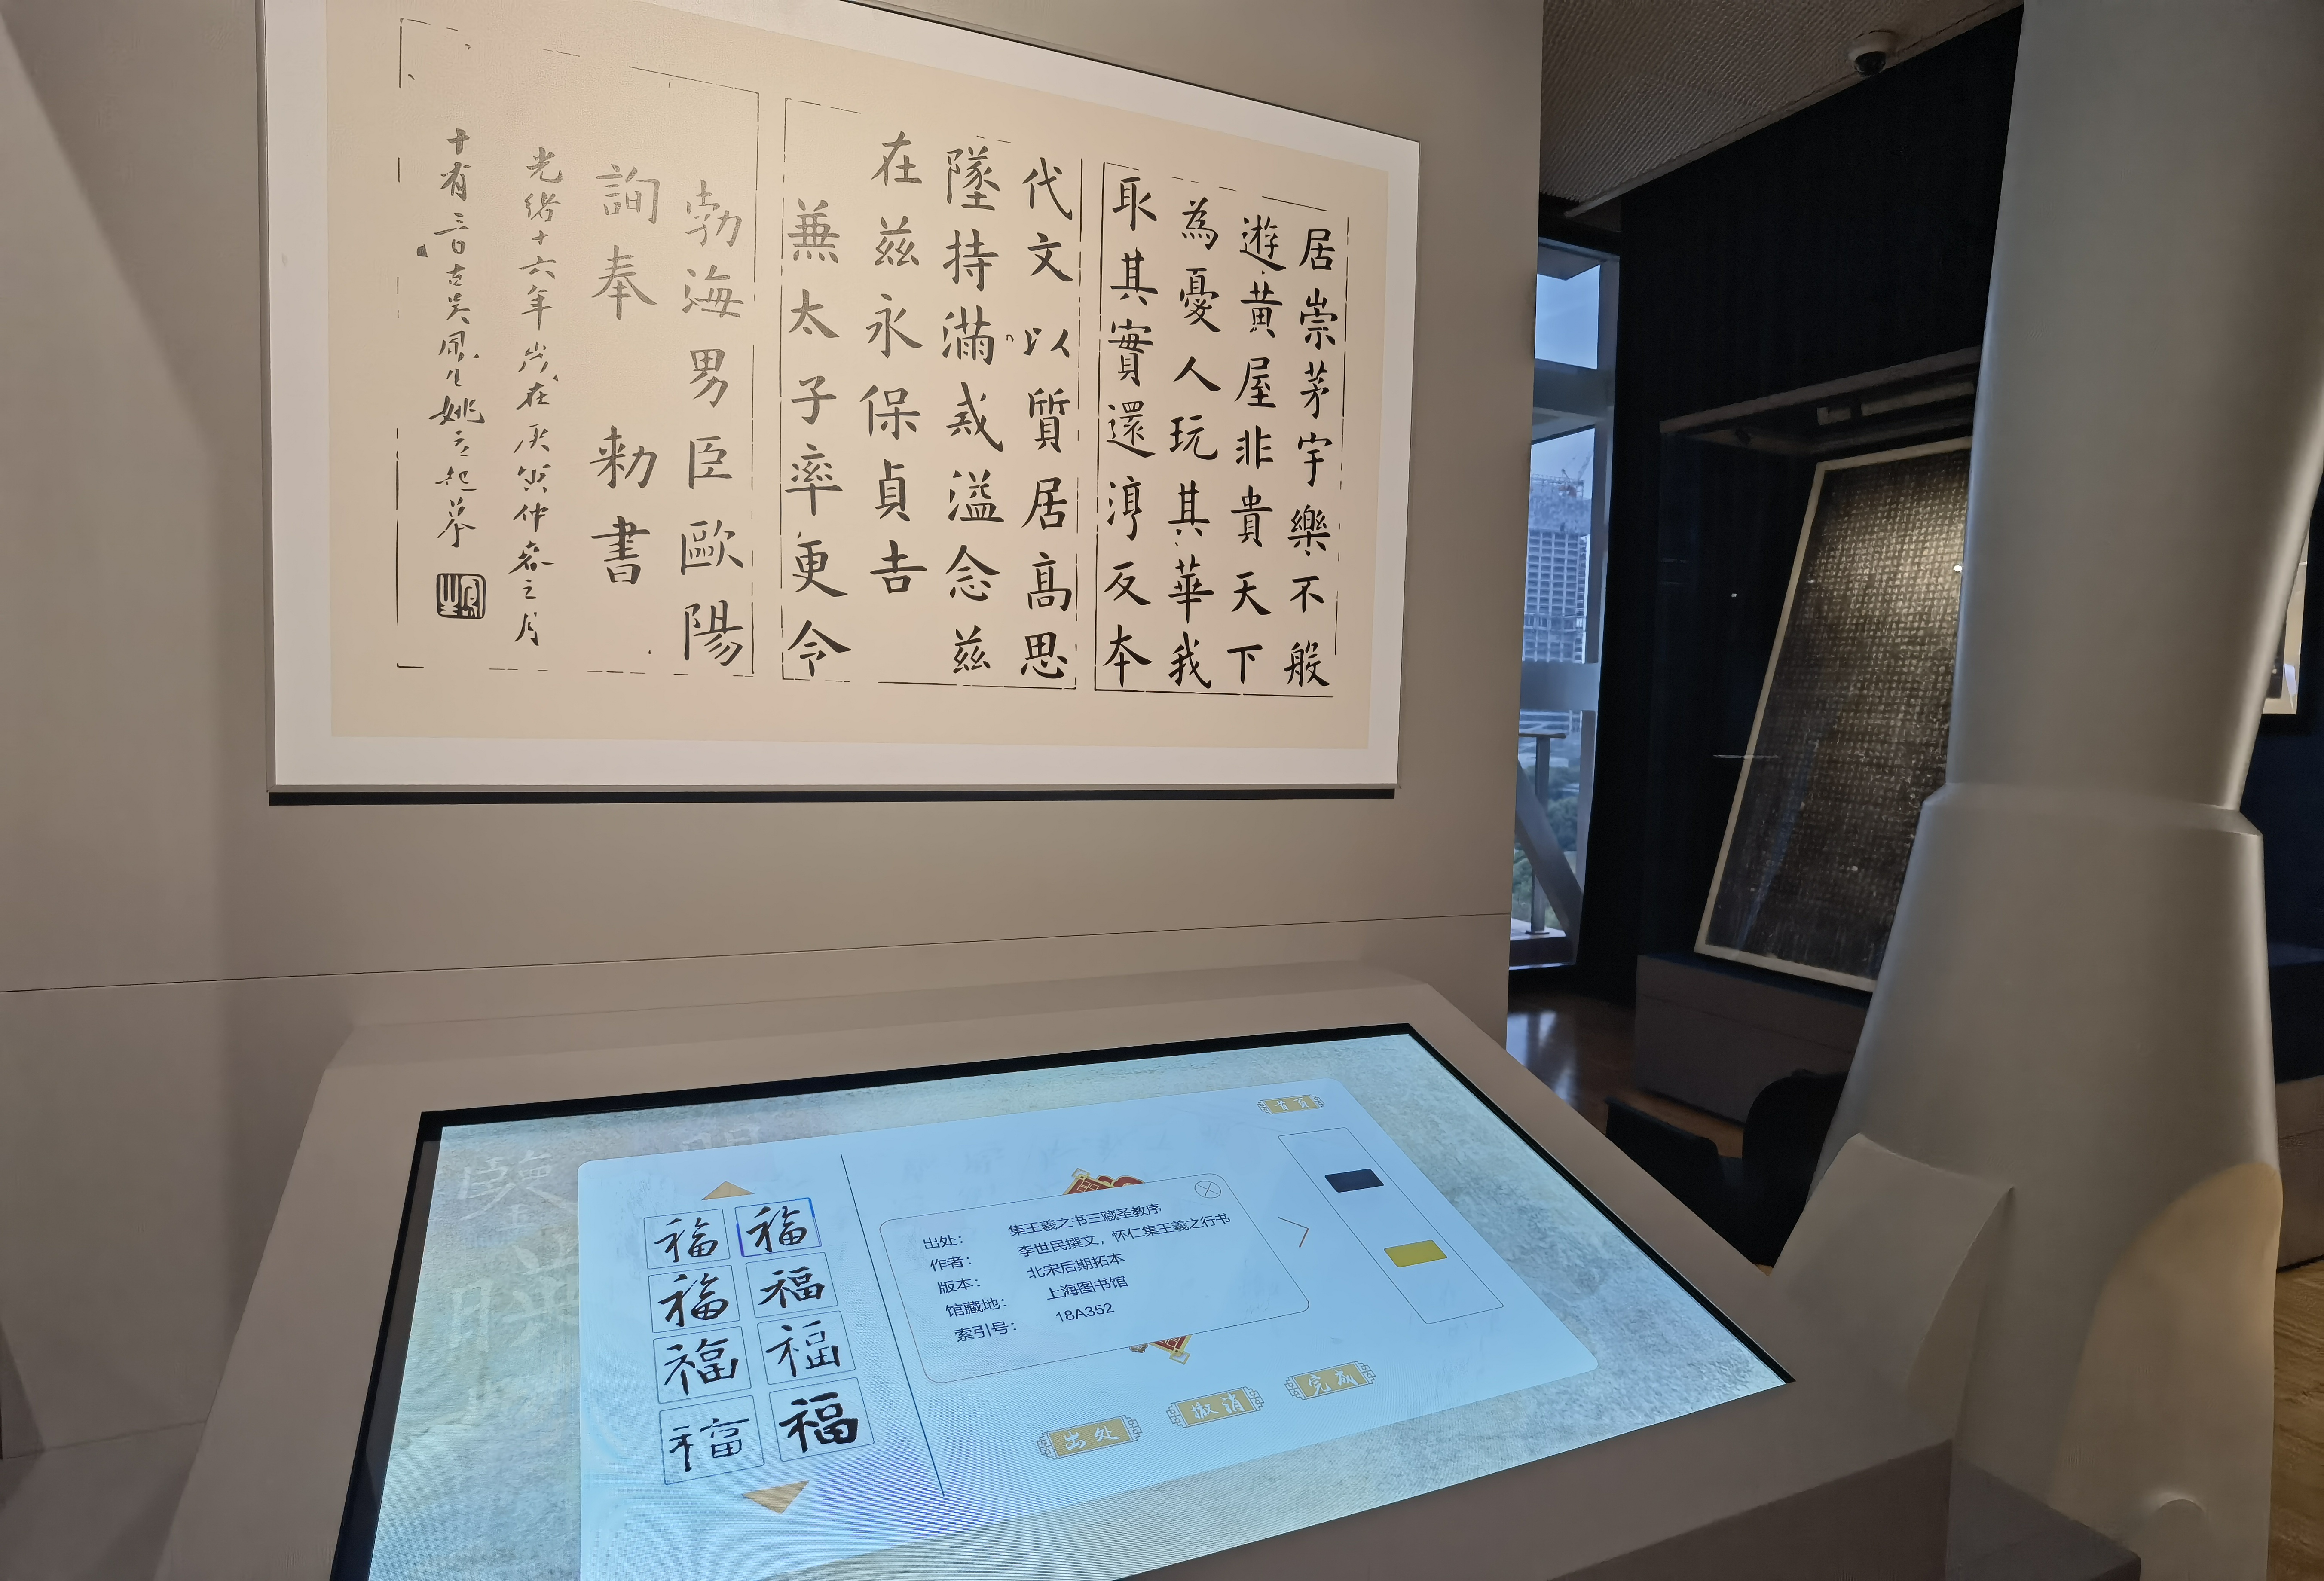 居崇茅宇樂不般
遊黃屋非貴天下
為憂人玩其華我
取其實還淳反本
代文以質居高思
墜持滿戒溢念茲
在茲永保貞吉
兼太子率更令
勃海男臣歐陽
詢奉 勑書
光緒十六年歲在庚寅仲春之月
十有三日古吳鳳生姚立起摹
首页
出处： 集王羲之书三藏圣教序
作者： 李世民撰文，怀仁集王羲之行书
版本： 北宋后期拓本
馆藏地： 上海图书馆
索引号： 18A352
福 福
福 福
福 福
福 福
出处 撤消 完成